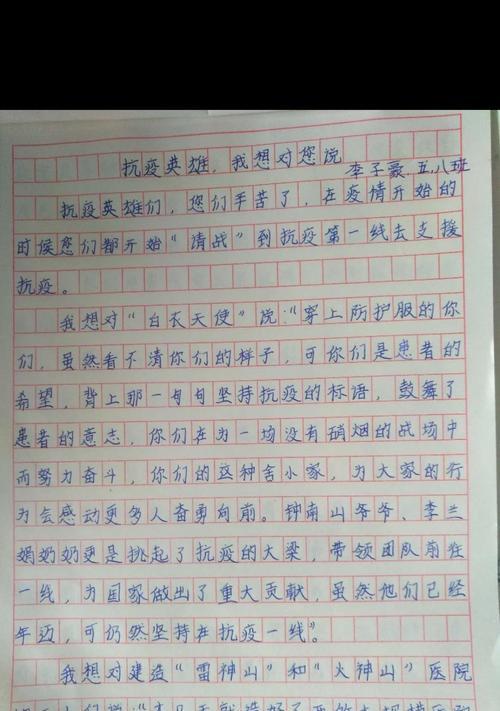 抗疫英雄，我想对您说
李子豪.五.八班
抗疫英雄们，您们手苦了，在疫情开始的
时候您们都开始“请战”到抗疫第一线去支援
抗疫。
我想对“白衣天使”院：“穿上防护服的你
们，虽然看不清你们的样子，可你们是患者的
希望，背上那一句句坚持抗疫的标语，鼓舞了
患者的意志，你们在为一场没有硝烟的战场中
而努力奋斗，你们的这种舍小家，为大家的行
为会感动更多人奋勇向前。钟南山爷爷、李兰
娟奶奶更是挑起了抗疫的大梁，带领团队前往
一线，为国家做出了重大贡献，虽然他们已经
年迈，可仍然坚持在抗疫一线”。
我想对建造“雷神山”和“火神山”医院